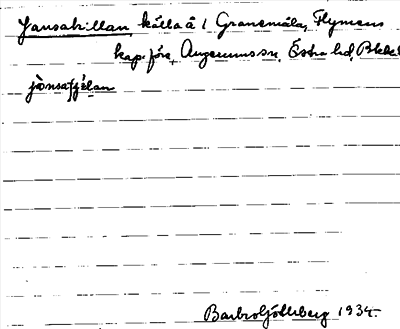 Jansakillan källa å 1 Granemåla, Flymens
kap.förs, Augerums sn, Östra hd, Blek.
jànsaçílan
Barbro Götleberg 1934.